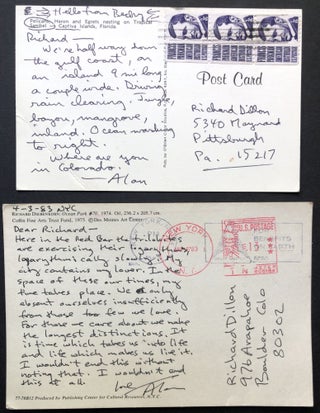 Hello from Becky
Pelicans, Heron and Egrets nesting on Tropical
Sanibel - Captiva Islands, Florida
Richard —
We're half way down
the gulf coast, on
an island 9 mi long
a couple wide. Driving
rain clearing. Jungle,
bayou, mangrove,
inland. Ocean marching
to right.
Where are you
in Colorado.
— Alan
Post Card
Richard Dillon
5340 Maynard
Pittsburgh
Pa. 15217
4-3-83 NYC
RICHARD DIEBENKORN: Ocean Park #70, 1974. Oil, 236.2 x 205.7 cm.
Coffin Fine Arts Trust Fund, 1975. © Des Moines Art Center
Dear Richard —
Here in the Red Bar the fruitflies
are exercising their logarythms,
logarythmically slowly. My
city contains my lower. In the
space of these our times, my
time takes place. We
absent ourselves insufficiently
from those too few we love.
For those we care about we make
the longest distinctions. It
is time which takes us into life
and life which makes us live it.
I wouldn't end this without
noting that. I wouldn't end
this at all.
love, Alan
NEW YORK
U.S. POSTAGE
Richard Dillon
976 Arapahoe
Boulder Colo
80302
77-78B12 Produced by Publishing Center for Cultural Resources, N.Y.C.